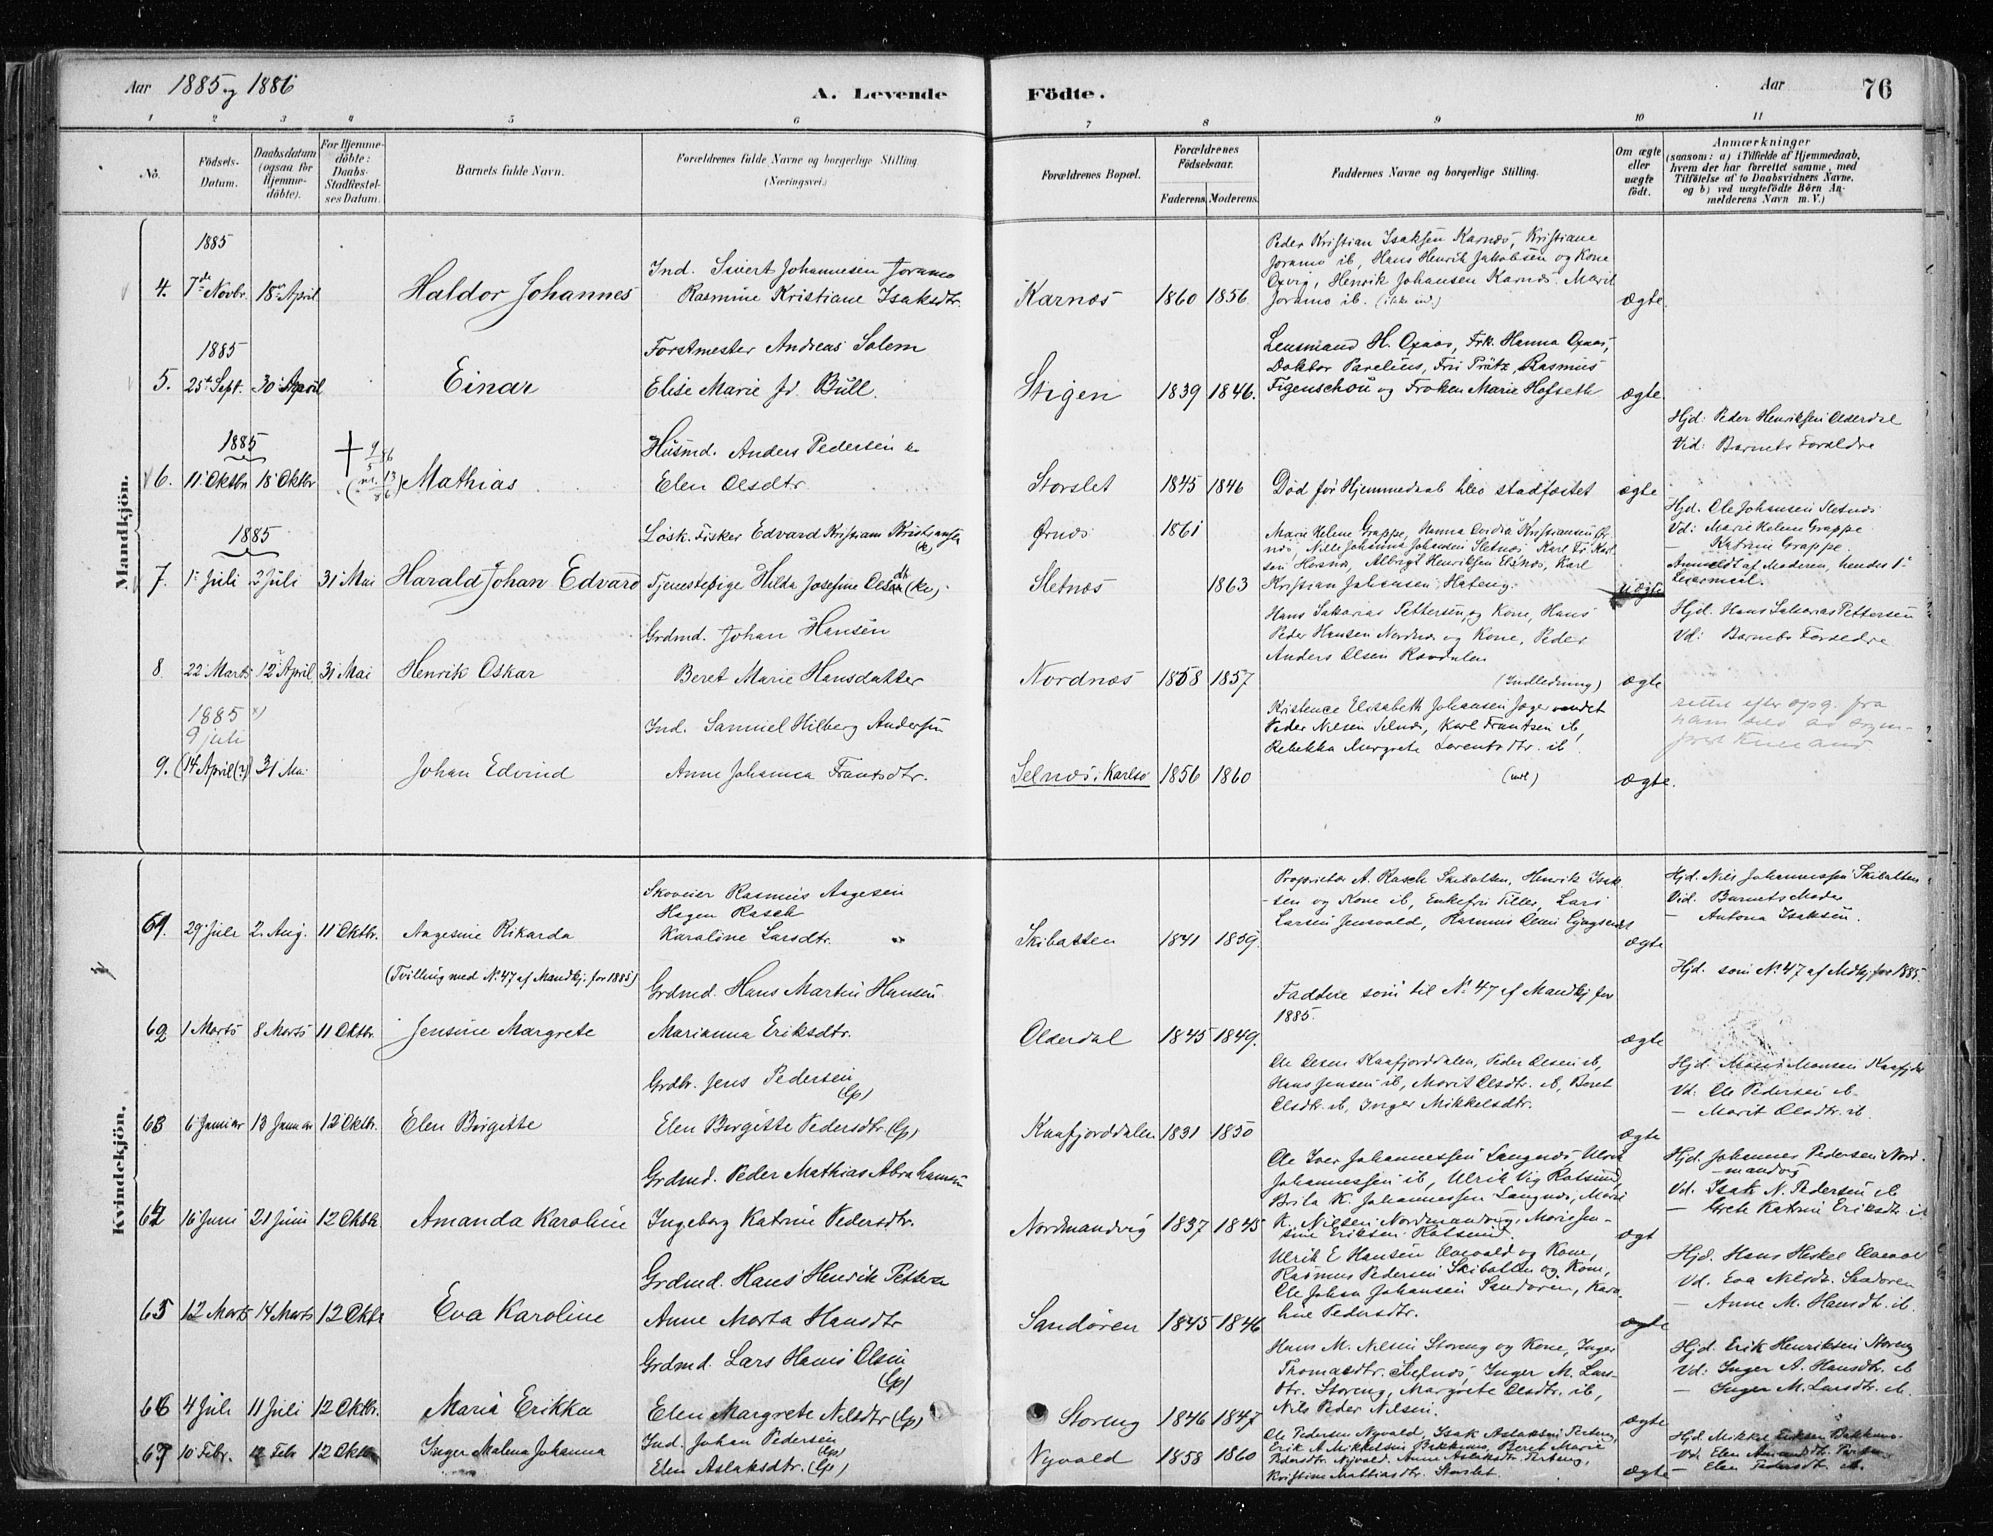 Aar 1885 og 1886
A. Levende
Födte.
Aar
76
1
2
3
4
5
6
7
8
9
10
11
No.
Födsels-
Datum.
Daabsdatum
(ogsaa for
Hjemme-
döbte).
For Hjemme-
döbte:
Daabs-
Stadfæstel-
ses Datum.
Barnets fulde Navn.
Forældrenes fulde Navne og borgerlige Stilling
(Næringsvei.)
Forældrenes Bopæl.
Forældrenes
Födselsaar.
Faderens.
Moderens.
Faddernes Navne og borgerlige Stilling.
Om ægte
eller
uægte
födt.
Anmærkninger
(saasom: a) i Tilfælde af Hjemmedaab,
hvem der har forrettet samme, med
Tilföielse af to Daabsvidners Navne,
og b) ved uægtefödte Börn An-
melderens Navn m. V.)
Mandkjön.
1885
4. 7de Novbr. 18 April
Haldor Johannes
Ind. Sivert Johannesen Joramo
Rasmine Kristiane Isaksdtr.
Karnæs 1860 1856
Peder Kristian Isaksen Karnæs, Kristiane
Joramo ib, Hans Henrik Jakobsen og Kone
Oxvig, Henrik Johansen Karnæs. Marit
Joramo ib. (ikke ind.)
ægte
1885
5. 25t Sept. 30 April
Einar
Forstmester Andreas Solem
Elise Marie fd. Bull.
Stigen 1839 1846.
Lensmand H. Opaas, Frk. Hanna Opaas,
Doktor Parelius, Fru Prätz, Rasmus
Figenschou og Frøken Marie Hofseth
ægte
1885
6. 11 Oktbr 18 Oktbr
Mathias
Husmd. Anders Pedersen
Elen Olsdtr.
Storslet 1845 1846
Død før Hjemmedaab blev stadfæstet
ægte
Hjd: Peder Henriksen
Vid: Barnets Forældre
1885
7. 1 Juli 2 Juli 31 Mai
Harald Johan Edvard
Løsk. Fisker Edvard Kristian Kristiansen
(k)
Tjenestepige Hilda Josefine Olsdtr (kv)
Ørnæs 1861
Sletnæs 1863
Marie Helene Grappe, Hanna Kristiansen Ør-
næs, Nille Johanna Johansen Sletnæs Karl
Albrigt Henriksen Karl
Kristian Johansen Hateng.
uægte
Hjd. Ole Johansen Sletnæs
Vd: Marie Helene Grappe
— Katrine Grappe
Anmeldt af Moderen, hendes 1
Leiermaal.
8 22 Marts 12 April 31 Mai
Henrik Oskar
Grdmd. Johan Hansen
Beret Marie Hansdatter
Nordnæs 1858 1857
Hans Sakarias Pettersen og Kone, Hans
Peder Hansen Nordnæs og Kone, Peder
Anders Olsen Ravdalen
(Indledning)
ægte
Hjd. Hans Sakarias Pettersen
Vd: Barnets Forældre
1885 x)
9 juli
9. (14 April(?)) 31 Mai
Johan Edvind
Ind. Samuel Hilberg Andersen
Anne Johanna Frantsdtr.
Selnæs i Karlsø 1856 1860
Kristence Elisabeth Johansen Jæger
Peder Nilsen Selnæs, Karl Frantsen ib,
Rebekka Margrete Lorentsdtr. ib.
(indl)
ægte.
rettet efter opg. fra
Kvindekjön.
61. 29 Juli 2. Aug. 11 Oktbr.
Aagesine Rikarda
Skoveier Rasmus Aagesen
Hagen Rasch
Karoline Larsdtr.
Skibotten 1841 1859.
Proprietær A. Rasch Skibotten, Henrik Isak-
sen og Kone ib, Enkefru Tiller, Lars
Larsen
ægte
Hjd. Nils Johannessen Skibotten
Vid. Barnets Moder
— Antona Isaksen.
(Tvilling med No 47 af Mandkj. for 1885)
62 1 Marts 8 Marts 11 Oktbr.
Jensine Margrete
Grdmd. Hans Martin Hansen
Marianna Eriksdtr.
Olderdal 1845 1849.
Faddere som til No 47 af Mandkj for
1885.
ægte
Hjd. som No 47 af Mdkj for 1885.
63 6 Januar 13 Januar 12 Oktbr.
Elen Birgitte
Grdbr. Jens Pedersen
(lp)
Elen Birgitte Pedersdtr. (lp)
Kaafjorddalen 1831 1850
Ole Olsen Kaafjorddalen, Peder Olsen ib,
Hans Jensen ib, Marit Olsdtr. ib, Beret
Olsdtr. ib, Inger Mikkelsdtr.
ægte
Hjd. Mons Monsen Kaafjdn
Vd: Ole Pedersen ib.
— Marit Olsdtr. ib.
64 16 Juni 21 Juni 12 Oktbr.
Amanda Karoline
Grdmd. Peder Mathias Abrahamsen
Ingeborg Katrine Pedersdtr.
Nordmandvig 1837 1845
Ole Iver Johannessen Langnæs,
Johannessen ib, Ulrik Vig Rotsund,
Brita K. Johannessen Langnæs,
K. Nilsen Nordmandvig, Marie Jen-
sine Eriksen Rotsund.
ægt
Hjd. Johannes Pedersen Nord-
mandvig
Vd. Isak N. Pedersen ib
— Grete Katrine Eriksdtr. ib
65 12 Marts 14 Marts 12 Oktbr
Eva Karoline
Grdmd. Hans Henrik Petters
Anne Marta Hansdtr
Sandøren 1845 1846
Ulrik E Hansen Elvevold og Kone,
Rasmus Pedersen Skibotten og Kone,
Ole Johan Johansen Sandøren, Karo-
line Pedersdtr.
ægte
Hjd. Hans Heskel Elvevold
Vd. Eva Nilsdtr. Sandøren
— Anne M. Hansdtr. ib.
66 4 Juli 11 Juli 12 Oktbr.
Maria Erikka
Grdmd. Lars Hans Olsen
(lp)
Elen Margrete Nilsdtr (lp)
Storeng 1846 1847
Hans M. Nilsen Storeng og Kone, Inger
Thomasdtr. Selnæs, Inger M. Lars-
dtr. Storeng, Margrete Olsdtr. ib,
Nils Peder Nilsen.
ægte
Hjd. Erik Henriksen Storeng
Vd: Inger A. Hansdtr. ib
— Inger M. Larsdtr. ib.
67 10 Febr. 12 Feb 12 Oktbr
Inger Malena Johanna
Ind. Johan Pedersen
(lp)
Elen Aslaksdtr. (lp)
Nyvold 1858 1860
Ole Pedersen Nyvold, Isak Aslaksen
Erik A. Mikkelsen Beret Marie
Pedersdtr. Nyvold, Anne Aslaksdtr.
Kristine Mathiasdtr. Storslet.
ægte
Hjd. Mikkel
Vd. Elen
— Elen Pedersdtr. ib.